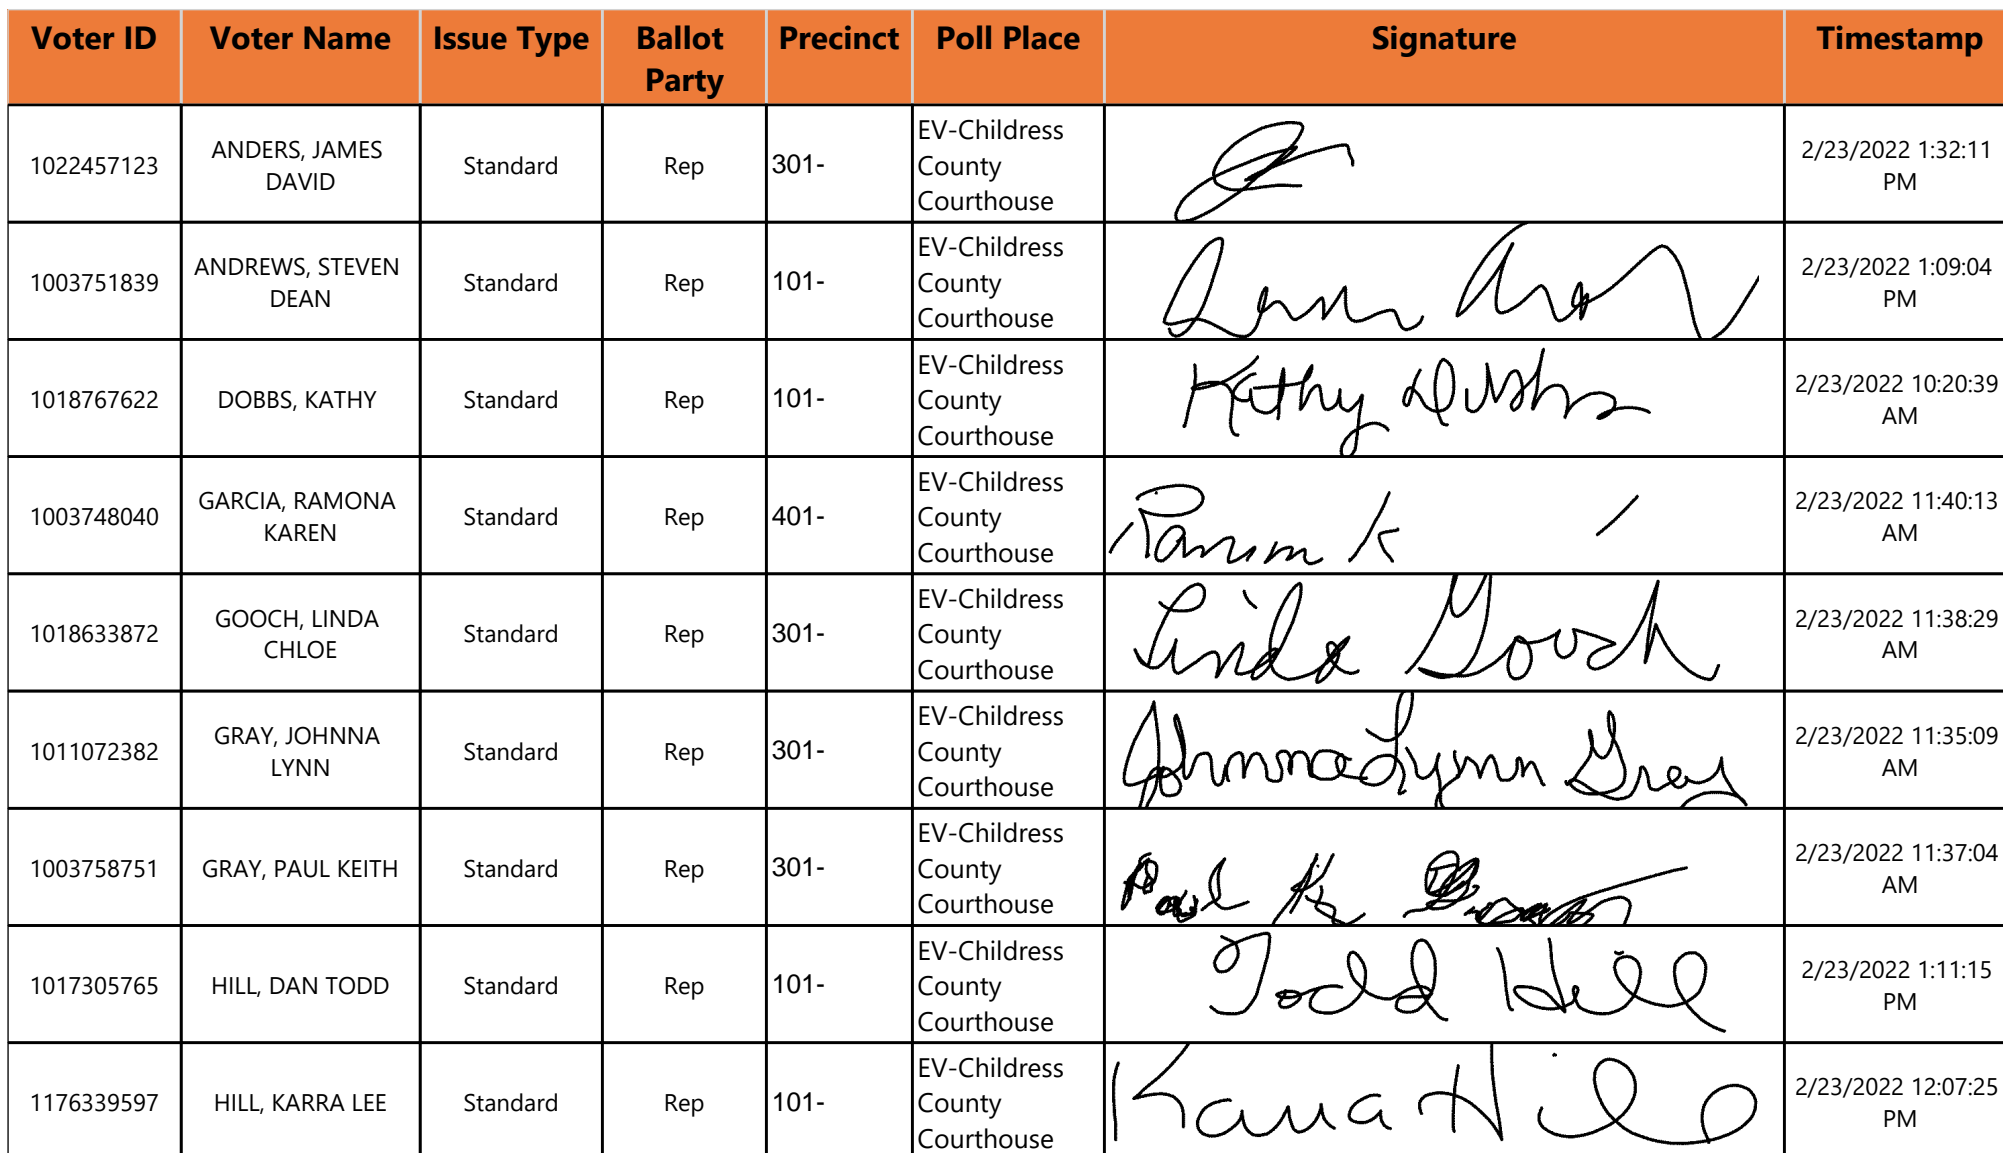 Voter ID Voter Name Issue Type Ballot Party Precinct Poll Place Signature Timestamp
1022457123 ANDERS, JAMES DAVID Standard Rep 301- EV-Childress County Courthouse 2/23/2022 1:32:11 PM
1003751839 ANDREWS, STEVEN DEAN Standard Rep 101- EV-Childress County Courthouse 2/23/2022 1:09:04 PM
1018767622 DOBBS, KATHY Standard Rep 101- EV-Childress County Courthouse Kathy 2/23/2022 10:20:39 AM
1003748040 GARCIA, RAMONA KAREN Standard Rep 401- EV-Childress County Courthouse K 2/23/2022 11:40:13 AM
1018633872 GOOCH, LINDA CHLOE Standard Rep 301- EV-Childress County Courthouse Linda Gooch 2/23/2022 11:38:29 AM
1011072382 GRAY, JOHNNA LYNN Standard Rep 301- EV-Childress County Courthouse Johnna Lynn Gray 2/23/2022 11:35:09 AM
1003758751 GRAY, PAUL KEITH Standard Rep 301- EV-Childress County Courthouse Paul K 2/23/2022 11:37:04 AM
1017305765 HILL, DAN TODD Standard Rep 101- EV-Childress County Courthouse Todd Hill 2/23/2022 1:11:15 PM
1176339597 HILL, KARRA LEE Standard Rep 101- EV-Childress County Courthouse Karra Hill 2/23/2022 12:07:25 PM